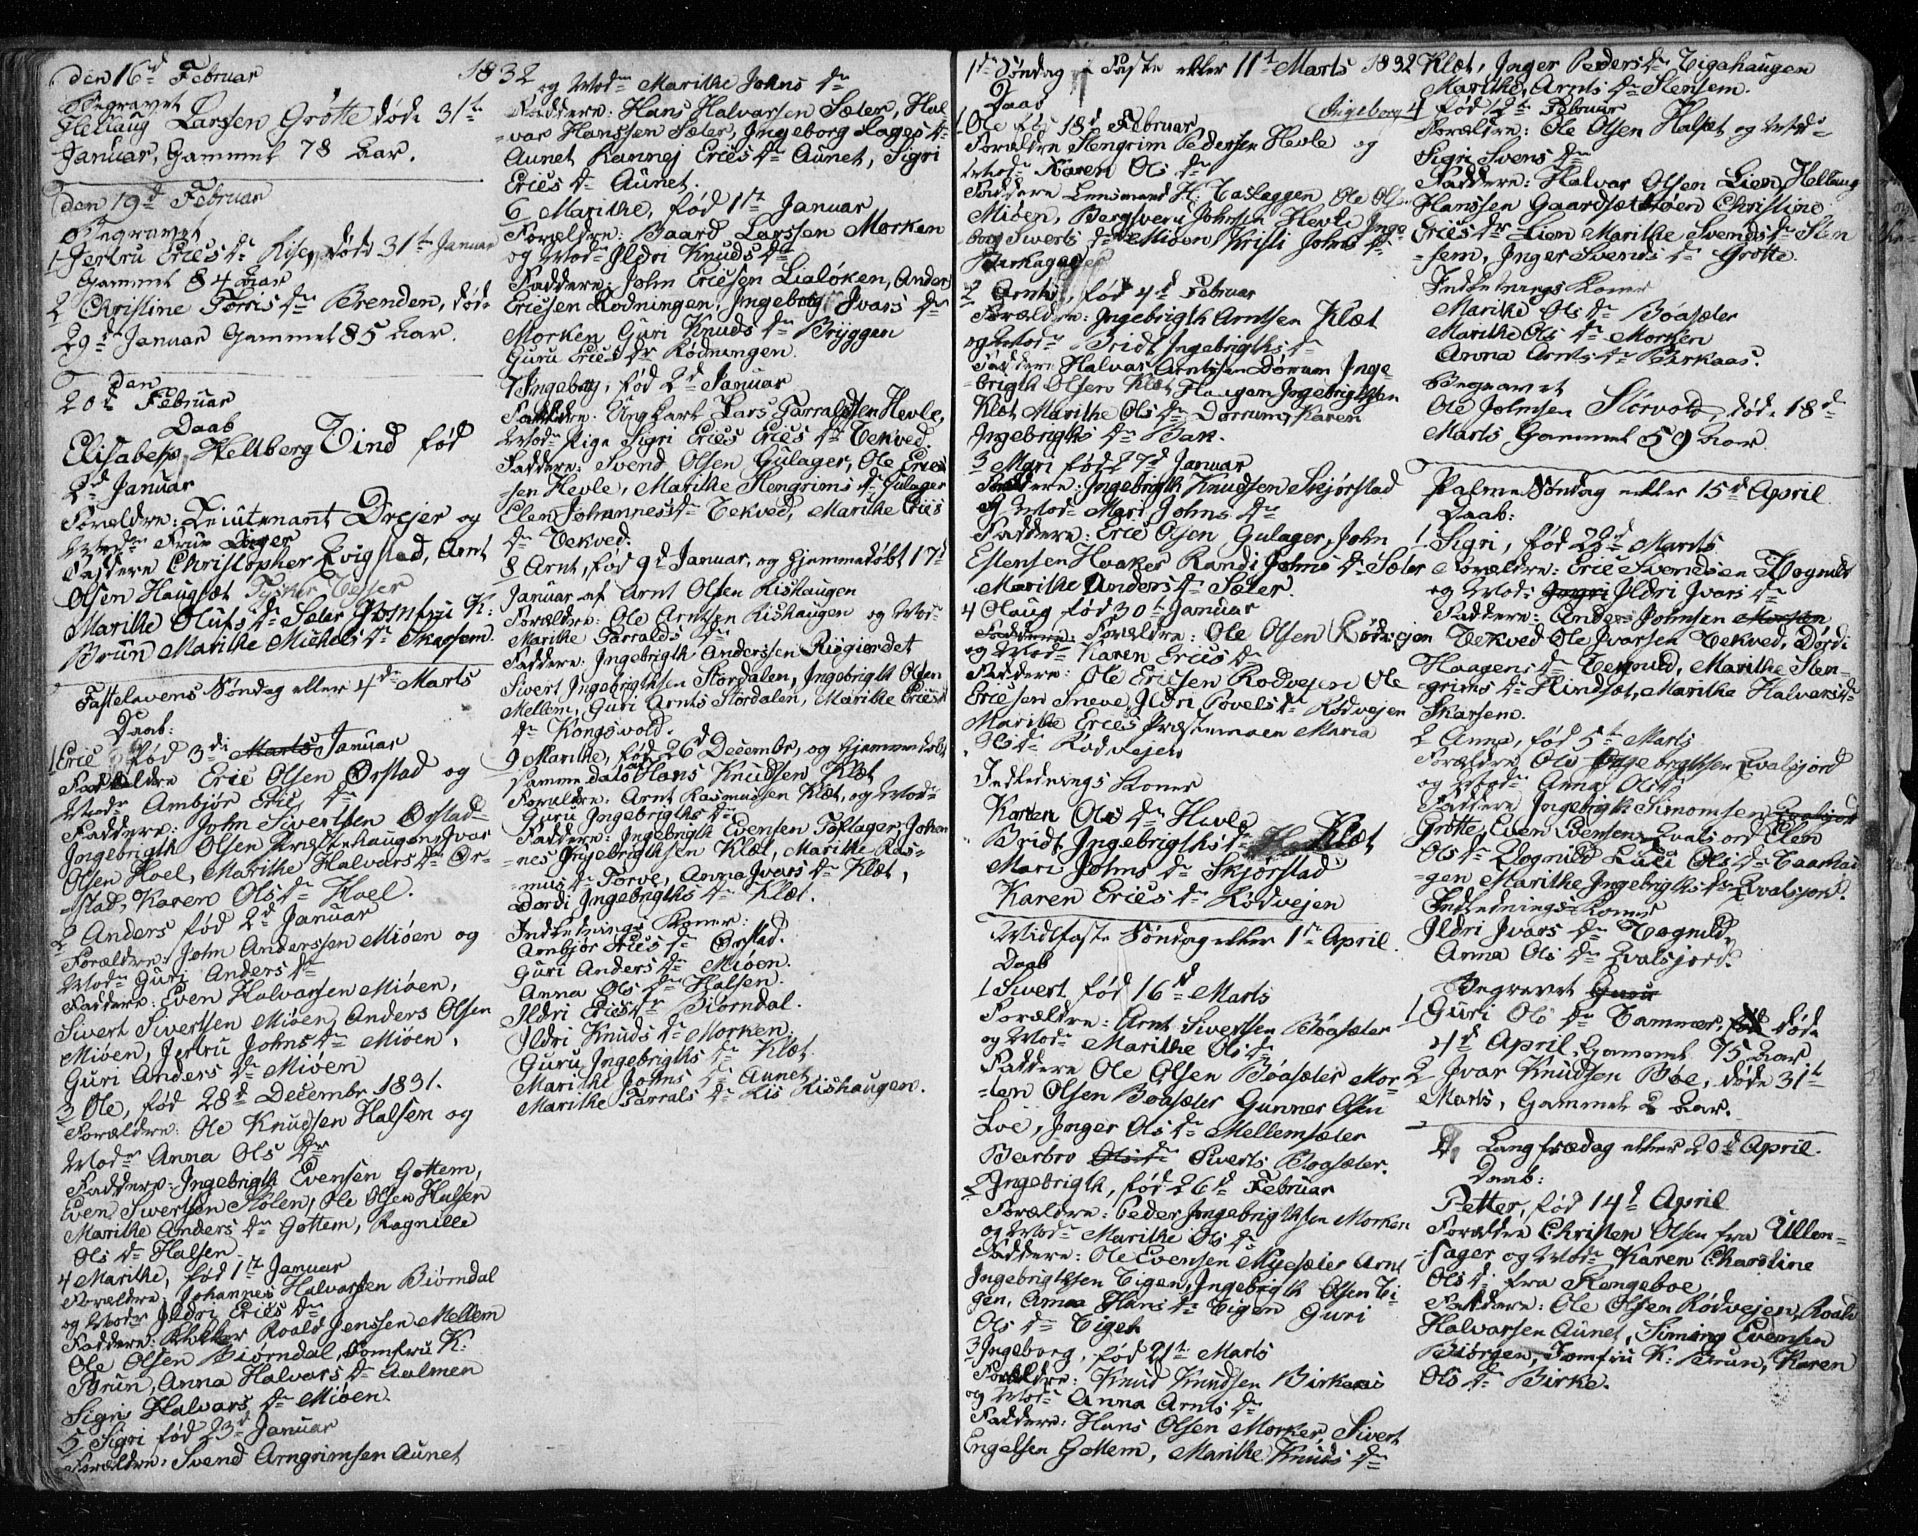 den 16d Februar 1832
Begravet
Hellaug Larsen Grøtte døde 31t
Januar, Gammel 78 Aar.
den 19d Februar
Begravet
1 Jertru Erics Dr Risen, døde 31t Januar
Gammel 84 Aar
2 Christine Torris Dr Brenden, døde
29d Januar Gammel 85 Aar.
den
20d Februar
Daab
Elisabeth Hellberg Tind fød
2d Januar
Forældre: Leiutenant Drejer og
Modr Frue
Faddere Christopher Evigstad, Arnt
Olsen Haugsæt
Marithe Olufs Dr Sæter Jomfru K:
Brun Marithe Michels Dr Skarsem.
Fastelavens Søndag eller 4de Marts
Daab:
1 Eric fød 3di Marts Januar
Forældre Eric Olsen Ørstad og
Modr Ambjør Erics Dr
Faddere: John Sivertsen Ørstad
Ingebrigth Olsen Præstehaugen, Ivar
Olsen Hoel, Marithe Halvars Dr Ør-
stad, Karen Ols Dr Hoel.
2 Anders fød 2d Januar
Forældre: John Anderssen Miøen og
Modr Guri Anders Dr
Faddere: Even Halvarsen Miøen,
Sivert Sivertsen Miøen, Anders Olsen
Miøen, Jertru Johns Dr Miøen,
Guri Anders Dr Miøen
3 Ole, fød 28d Decembr 1831.
Forældre: Ole Knudsen Halsen og
Modr Anna Ols Dr
Faddere: Ingebrigth Evensen Gottem,
Even Sivertsen Stølen, Ole Olsen Halsen
Marithe Anders Dr Gottem, Ragnille
Ols Dr Halsen
4 Marithe, fød 1st Januar
Forældre: Johannes Halvarsen Biørndal
og Modr Ildri Erics Dr
Faddere: Klokker Roald Jenssen Mellem
Ole Olsen Biørndal, Jomfru K:
Brun, Anna Halvars Dr Aalmen
Sigri Halvars Dr Miøen.
5 Sigri fød 23d Januar
Forældre: Svend Arngrimsen Aunet
og Modr Marithe Johns Dr
Faddere: Hans Halvarsen Sæter, Hal-
var Hanssen Sæter, Ingeborg Lages Dr
Aunet Rannej Erics Dr Aunet, Sigri
Erics Dr Aunet.
6 Marithe, fød 1st Januar
Forældre: Baard Larssen Morken
og Modr Ildri Knuds Dr
Faddere: John Ericsen Lialøken, Anders
Ericsen Rodningen, Ingeborg Ivars Dr
Morken Guri Knuds Dr Bryggen
Guru Erics Dr Rødningen.
7 Ingeborg, fød 2d Januar
Forældre: Ungkarl Lars Tarraldsen Hevle,
Modr Pige Sigri Erics Erics Dr Vekved.
Faddere: Svend Olsen Gulager, Ole Eric-
sen Hevle, Marithe Stengrims Dr Gulager
Elen Johannes Dr Vekved, Marithe Erics
Dr Vekved.
8 Arnt, fød 9d Januar, og hjemmedøbt 17d
Januar af Arnt Olsen Kishaugen
Forældre: Ole Arntsen Kishaugen og Modr
Marithe Tarralds Dr
Faddere: Ingebrigth Anderssen Risgierdet
Sivert Ingebrigthsen Stordalen, Ingebrigth Olsen
Mellem, Guri Arnts Stordalen, Marithe Erics
Dr Kongsvold.
9 Marithe, fød 26d Decembr, og hjemmedøbt
samme dato af Hans Knudsen Klæt
Forældre: Arnt Rasmussen Klæt, og Modr
Guru Ingebrigths Dr
Faddere: Ingebrigth Evensen Toflager, Johan-
nes Ingebrigthsen Klæt, Marithe Ras-
mus Dr Torve, Anna Ivars Dr Klæt,
Dordi Ingebrigths Dr Klæt.
Indledninge Koner
Ambjør Erics Dr Ørstad.
Guri Anders Dr Miøen.
Anna Ols Dr Halsen.
Ildri Erics Dr Biørndal.
Ildri Knuds Dr Morken.
Guru Ingebrigths Dr Klæt.
Marithe Johns Dr Aunet
Marithe Tarrals Dr Kishaugen.
1ste Søndag i Faste eller 11t Marts 1832
Daab
1 Ole fød 18d Februar
Forældre Stengrim Pedersen Hevle og
Modr Karen Ols Dr
Faddere Lensmand H. Vasleggen Ole Olsen
Miøen, Bergsven Johnsen Hevle Inge-
borg Siverts Dr Miøen Kristi Johns Dr
2 Arnt, fød 4d Februar
Forældre: Ingebrigth Arntsen Klæt
og Modr Bridt Ingebrigths Dr
Faddere: Halvar Arntsen Dørrum Inge-
brigth Olsen Klæt Haagen Ingebrigthsen
Klæt Marithe Ols Dr Dørrum, Karen
Ingebrigths Dr Bak.
3 Mari fød 27d Januar
Forældre: Ingebrigth Knudsen Skjørstad
og Modr Mari Johns Dr
Faddere: Eric Olsen Gulager, John
Estensen Hoaker Randi Johns Dr Sæter
Marithe Anders Dr Sæter.
4 Olaug fød 30t Januar
Faddere: Forældre: Ole Olsen Rødvejen
og Modr Karen Erics Dr
Faddere: Ole Ericsen Rodvejen Ole
Ericsen Sneve, Ildri Povels Dr Rødvejen
Marithe Erics Præstemoen Maria
Ols Dr Rodvejen
Indlednings Koner
Karen Ols Dr Hevle
Bridt Ingebrigths Dr Klæt
Mari Johns Dr Skjørstad
Karen Erics Dr Rødvejen
Midfaste Søndag eller 1st April
Daab
1 Sivert fød 16d Marts
Forældre: Arnt Sivertsen Bøasæter
og Modr Marithe Ols Dr
Faddere Ole Olsen Bøasæter Mor-
ten Olsen Bøasæter Gunner Olsen
Loe, Inger Ols Dr Mellemsæter
Berbro Ols Dr Siverts Boasæter.
2 Ingebrigth, fød 26d Februar
Forældre: Peder Ingebrigthsen Morken
og Modr Marithe Ols Dr
Faddere: Ole Evensen Myesæter Arnt
Ingebrigthsen Tigen, Ingebrigth Olsen Ti-
gen, Anna Hans Dr Tigen Guri
Ols Dr Tigen
3 Ingeborg, fød 21t Marts
Forældre: Knud Knudsen Birkaas
og Modr Anna Arnts Dr
Faddere: Hans Olsen Morken, Sivert
Engelsen Gottem, Marithe Knuds Dr
Klæt, Inger Peders Dr Tigahaugen
Marithe Arnts Dr Stensem.
Ingeborg 4 fød 12t Februar
Forældre: Ole Olsen Halset og Modr
Sigri Svens Dr
Faddere: Halvar Olsen Lien, Hellaug
Hanssen Gaardsætrøen Christine
Erics Dr Lien Marithe Svends Dr Sten-
sem, Inger Svends Dr Grøtte.
Indlednings Koner
Marithe Ols Dr Bøasæter
Marithe Ols Dr Morken
Anna Arnts Dr Birkaas.
Begravet
Ole Johnsen Storvold, døde 18d
Marts Gammel 59 Aar
Palme Søndag eller 15d April
Daab:
1 Sigri, fød 28d Marts
Forældre: Eric Svendsen Vognild
og Modr Ingri Ildri Ivars Dr
Faddere: Anders Johnsen Morken
Vekved Ole Ivarsen Vekved, Dordi
Haagens Dr Vognild, Marithe Sten-
grims Dr Rindsæt, Marithe Halvars Dr
Skarsem.
2 Anne, fød 5t Marts
Forældre Ole Ingebrigthsen Evalsjord
og Modr Anna Ols Dr
Faddere Ingebrigth Simonsen Evalsjord
Grøtte, Even Bensen Evalsjord Elen
Ols Dr Vognild Ols Dr Taarhau-
gen Marithe Ingebrigths Dr Evalsjord.
Indlednings Koner
Ildri Ivars Dr Vognild
Anna Ols Dr Evalsjord.
Begravet Guru
1 Guri Ols Dr Vammer, fød døde
4d April Gammel 75 Aar
2 Ivar Knudsen Bøe, døde 31t
Marts, Gammel 2 Aar.
Langfredag eller 20d April.
Daab:
Petter, fød 14d April
Forældre Christen Olsen fra Ullen-
sager og Modr Karen Charoline
Ols Dr fra Kongeboe
Faddere: Ole Olsen Rødvejen, Roald
Halvarsen Aunet, Simony Evensen
Biørgen, Jomfru K: Brun, Karen
Ols Dr Birke.